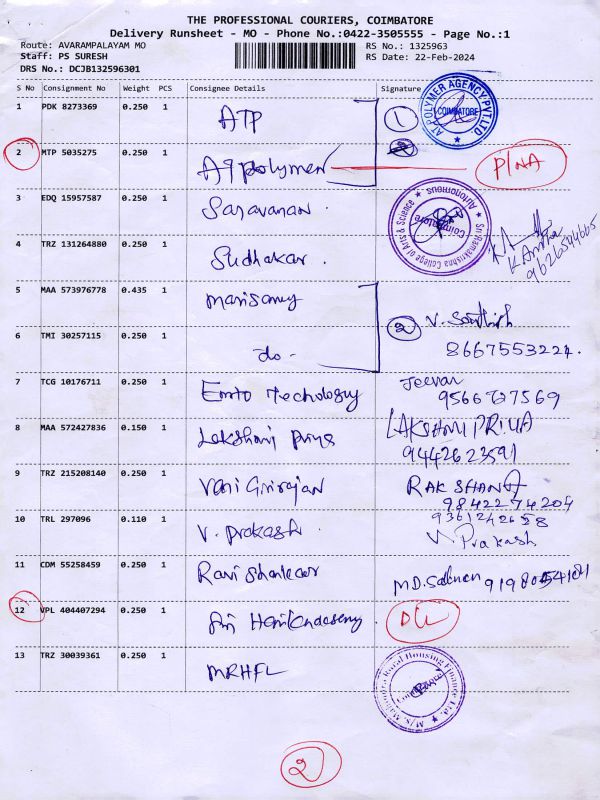 THE PROFESSIONAL COURIERS, COIMBATORE
Delivery Runsheet - MO - Phone No.:0422-3505555 - Page No.:1
Route: AVARAMPALAYAM MO
RS No.: 1325963
Staff: PS SURESH
RS Date: 22-Feb-2024
DRS No.: DCJB132596301
S No Consignment No Weight PCS Consignee Details Signature
1 PDK 8273369 0.250 1 ATP 1
AT POLYMER AGENCY PVT LTD COIMBATORE
2 MTP 5035275 0.250 1 AT polymer 2 P/NA
3 EDQ 15957587 0.250 1 Saravanan
Sri Ramakrishna College of Arts & Science Autonomous Coimbatore
4 TRZ 131264880 0.250 1 Sudhakar
K. Anitha
9626544665
5 MAA 573976778 0.435 1 Marisamy
2 V. Santhish
6 TMI 30257115 0.250 1 do - 8667553224.
7 TCG 10176711 0.250 1 Emto Techology Jeevan
9566727569
8 MAA 572427836 0.150 1 Lakshmi priya LAKSHMI PRIYA
9442623591
9 TRZ 215208140 0.250 1 Vani Girirajan RAKSHANA
9842274204
9361242658
10 TRL 297096 0.110 1 V. prakash V Prakash
11 CDM 55258459 0.250 1 Ravi Shankar MD. Salman
12 VPL 404407294 0.250 1 Sri DL
13 TRZ 30039361 0.250 1 MRHFL
M/s. Mahindra Rural Housing Finance Ltd.
2